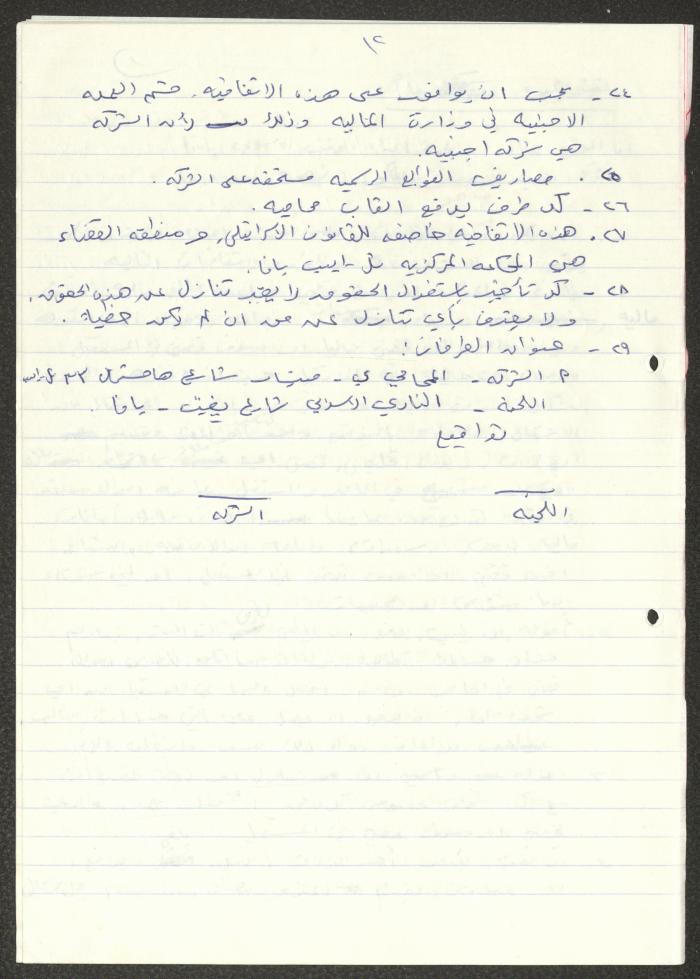 ١٢
٢٤- يجب ان يوافق على هذه الاتفاقيه، قسم العمله
الاجنبيه في وزارة الماليه وذلك لأن الشركه
هي شركه اجنبيه.
٢٥. مصاريف الطوابع الرسميه مستحقه على الشركه.
٢٦- كل طرف يدفع اتعاب محاميه.
٢٧. هذه الاتفاقيه خاضعه للقانون الاسرائيلي، ومنطقة القضاء
هي المحكمه المركزيه تل-ابيب يافا.
٢٨- كل تأخير باستغلال الحقوق لا يعتبر تنازل عن هذه الحقوق.
ولا يعترف بأي تنازل عن حق ان لم يكن خطياً.
٢٩- عنوان الطرفان:
الشركه - المحامي شارع ٣٣
اللجنة - النادي الاسلامي شارع يفيت - يافا.
تواقيع
اللجنه الشركه